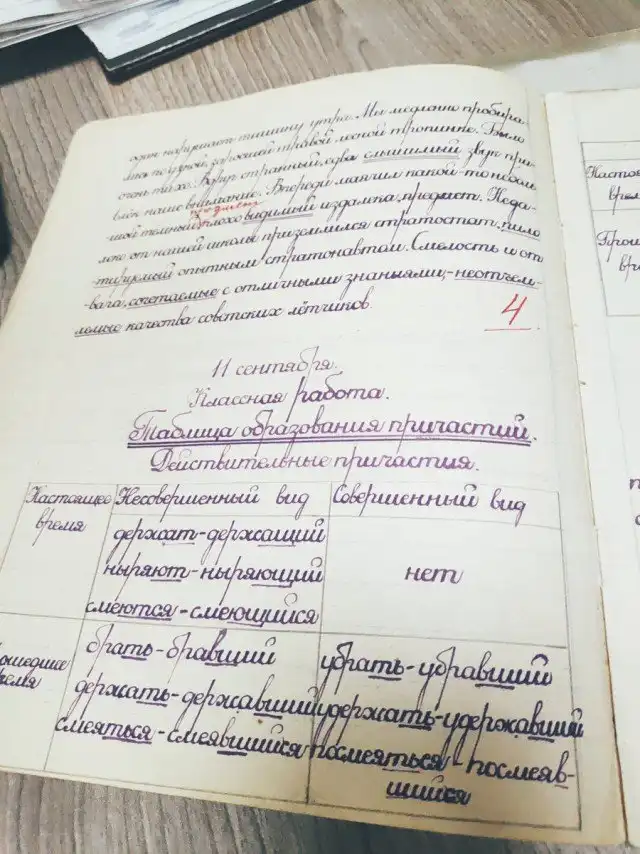 один нарушает тишину утра. Мы медленно пробира-
лись по узкой, заросшей травой лесной тропинке. Было
очень тихо. Вдруг странный, едва слышимый звук при-
влёк наше внимание. Впереди маячил какой-то небол-
шой темный, плохо видимый издалека, предмет. Неда-
леко от нашей школы приземлился стратостат, пило-
тируемый опытным стратонавтом. Смелость и от
вага, сочетаемые с отличными знаниями, - неотъем-
лемые качества советских лётчиков.
4
11 сентября.
Классная работа.
Таблица образования причастий.
Действительные причастия.
Настоящее время
Несовершенный вид
Совершенный вид
держат - держащий
ныряют - ныряющий
смеются - смеющийся
нет
брать - бравший
держать - державший
смеяться - смеявшийся
убрать - убравший
удержать - удержавший
посмеяться - посмеяв-
шийся